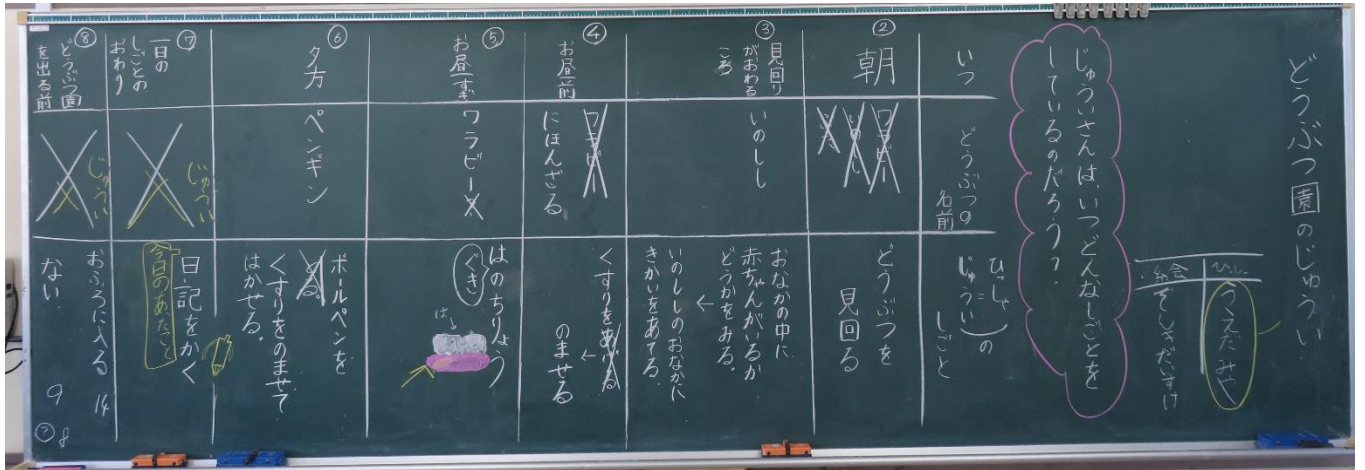 どうぶつ園のじゅうい
ひっしゃ
うえだ みや
絵
じゅういさんは、いつどんなしごとを
しているのだろう？
いつ
どうぶつの
名前
ひっしゃ
=
じゅうい
の
しごと
②
朝
ワラビー
いのしし
どうぶつを
見回る
③
見回り
がおわる
ころ
いのしし
おなかの中に
赤ちゃんがいるか
どうかをみる。
←
いのししのおなかに
きかいをあてる。
④
お昼前
ワラビー
にほんざる
くすりを
←
のませる
⑤
お昼すぎ
ワラビー
はのちりょう
ぐき
は
⑥
夕方
ペンギン
ボールペンを
くすりをのませて
はかせる。
⑦
一日の
しごとの
おわり
じゅうい
日記をかく
今日のあたこと
⑧
どうぶつ園
を出る前
じゅうい
おふろに入る
14
ない
9
?
8